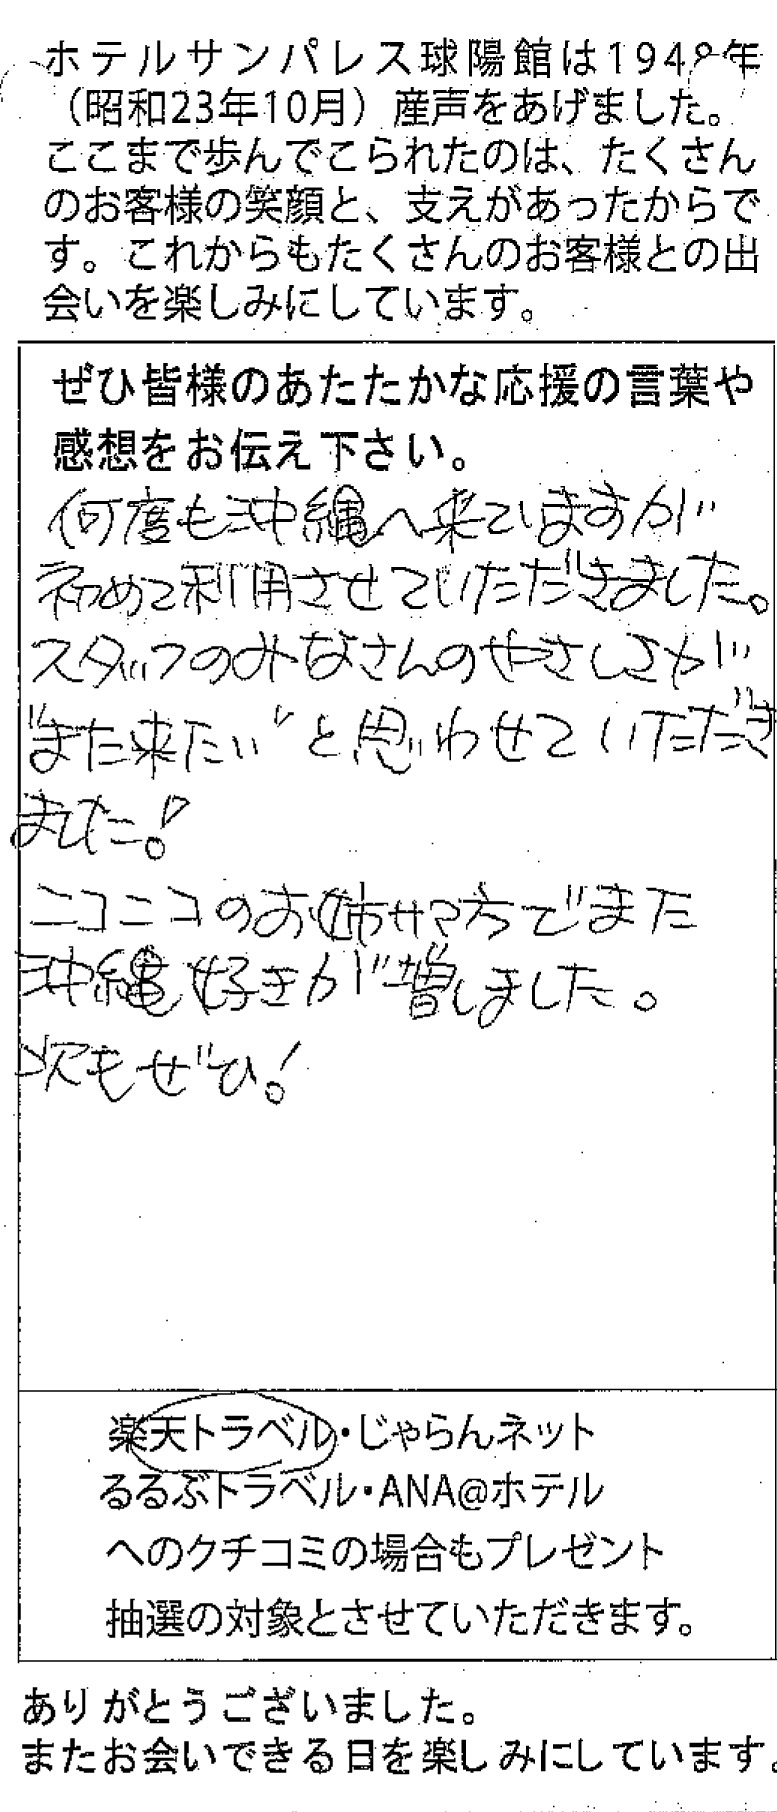 ホテルサンパレス球陽館は1948年
（昭和23年10月）産声をあげました。
ここまで歩んでこられたのは、たくさん
のお客様の笑顔と、支えがあったからで
す。これからもたくさんのお客様との出
会いを楽しみにしています。
ぜひ皆様のあたたかな応援の言葉や
感想をお伝え下さい。
何度も沖縄へ来ていますが
初めて利用させていただきました。
スタッフのみなさんのやさしさが
"また来たい"と思わせていただき
ました!
ニコニコのお姉サマ方でまた
沖縄好きが増しました。
次もぜひ!
楽天トラベル・じゃらんネット
るるぶトラベル・ANA@ホテル
へのクチコミの場合もプレゼント
抽選の対象とさせていただきます。
ありがとうございました。
またお会いできる日を楽しみにしています。